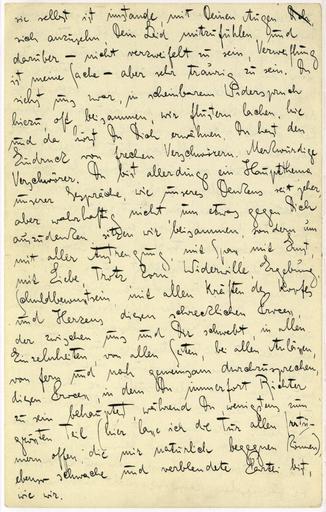 sie selbst ist imstande, mit Deinen Augen
sich anzusehn Dein Leid mitzufühlen und
darüber – nicht verzweifelt zu sein, Verzweiflung
ist meine Sache – aber sehr traurig zu sein. Du
siehst uns zwar, in scheinbarem Widerspruch
hiezu, oft beisammen, wir flüstern, lachen, hie
und da hörst Du Dich erwähnen. Du hast den
Eindruck von frechen Verschwörern. Merkwürdige
Verschwörer. Du bist allerdings ein Hauptthema
unserer Gespräche, wie unseres Denkens seit jeher
aber wahrhaftig nicht um etwas gegen Dich
auszudenken sitzen wir beisammen, sondern um
mit aller Anstrengung, mit Spaß, mit Ernst,
mit Liebe, Trotz, Zorn, Widerwille, Ergebung,
Schuldbewußtsein, mit allen Kräften des Kopfes
und Herzens diesen schrecklichen Proceß,
der zwischen uns und Dir schwebt, in allen
Einzelheiten von allen Seiten, bei allen Anlässen,
von fern und nah gemeinsam durchzusprechen,
diesen Proceß, in dem Du immerfort Richter
zu sein behauptest, während Du wenigstens zum
größten Teil (hier lasse ich die Tür allen Irrtü-
mern offen, die mir natürlich begegnen können)
ebenso schwache und verblendete Partei bist,
wie wir.